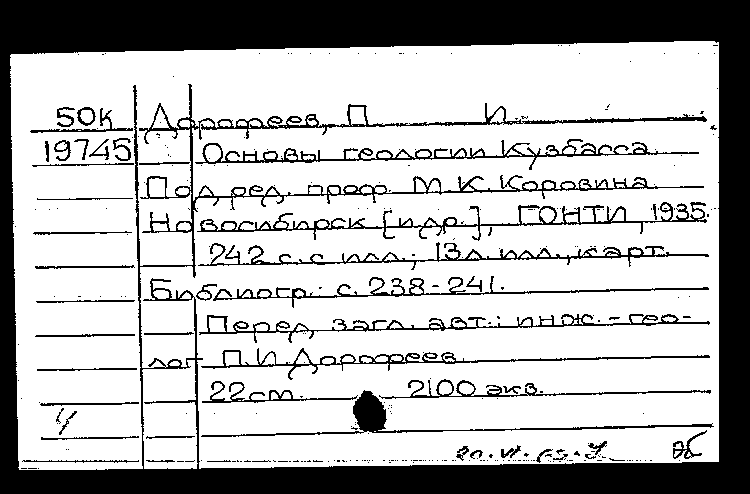 50К Дорофеев, П И.
19745 Основы геологии Кузбасса.
Под ред. проф. М.К. Коровина.
Новосибирск [и др.], ГОНТИ, 1935.
242 с. с илл.; 13 л. илл., карт.
Библиогр.: с. 238-241.
Перед загл. авт.: инж.-гео-
лог П.И. Дорофеев.
22 cm. 2100 экз.